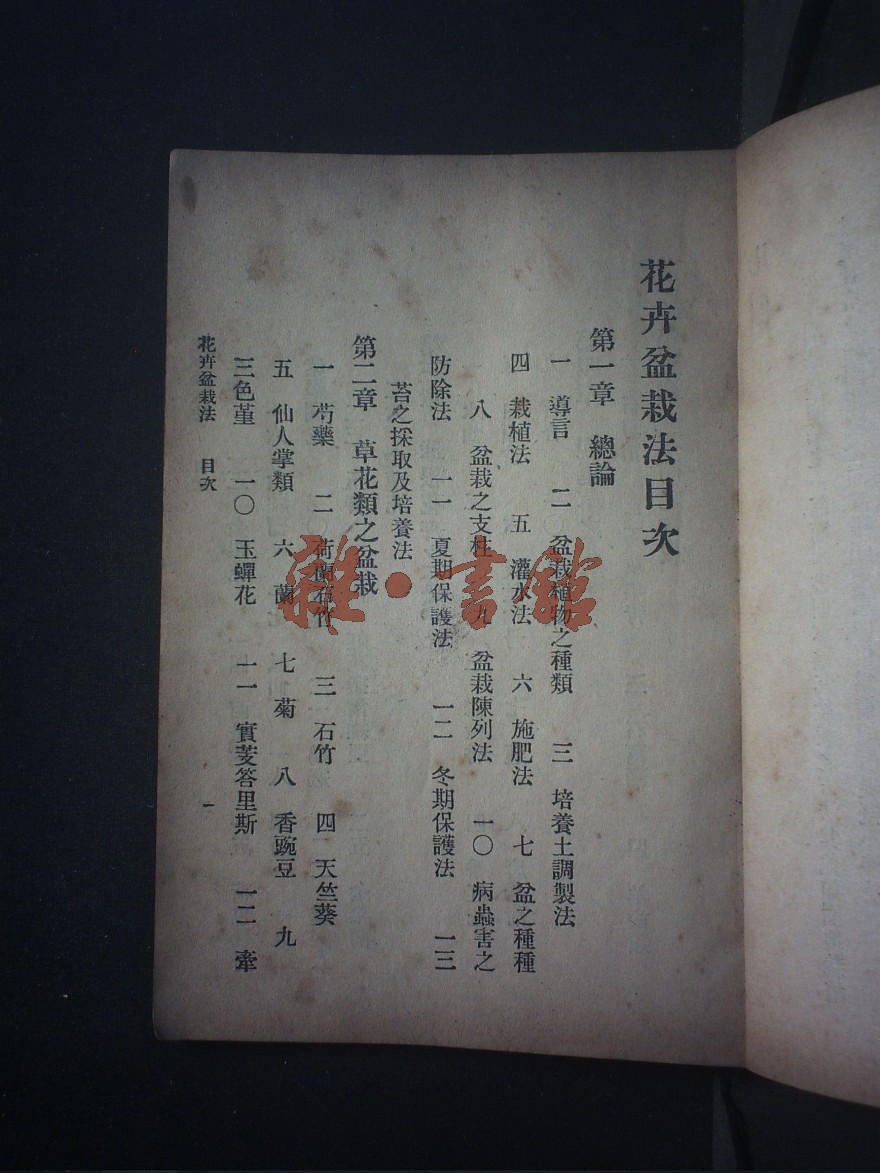 花卉盆栽法目次
第一章 總論
一 導言 二 盆栽植物之種類 三 培養土調製法
四 栽植法 五 灌水法 六 施肥法 七 盆之種種
八 盆栽之支柱 九 盆栽陳列法 一〇 病蟲害之
防除法 一一 夏期保護法 一二 冬期保護法 一三
苔之採取及培養法
第二章 草花類之盆栽
一 芍藥 二 荷蘭石竹 三 石竹 四 天竺葵
五 仙人掌類 六 蘭 七 菊 八 香豌豆 九
三色堇 一〇 玉蟬花 一一 實芰答里斯 一二 牽
花卉盆栽法 目次 一
雜·書館